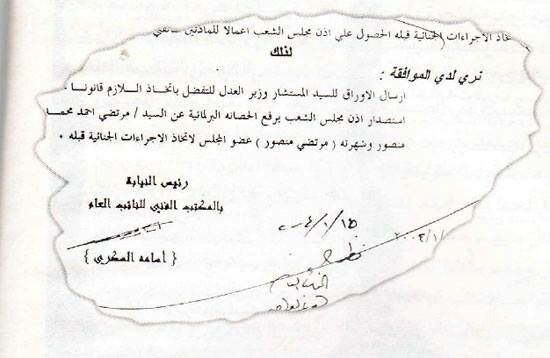 تخاذ الاجراءات الجنائية قبله الحصول علي اذن مجلس الشعب اعمالا للمادتين
لذلك
نري لدي الموافقة :
ارسال الاوراق للسيد المستشار وزير العدل للتفضل باتخاذ اللازم قانونا ـ
استصدار اذن مجلس الشعب برفع الحصانه البرلمانية عن السيد / مرتضي احمد محمـ
منصور وشهرته ( مرتضي منصور ) عضو المجلس لاتخاذ الاجراءات الجنائية قبله .
رئيس النيابة
بالمكتب الفني للنائب العام
{ أسامه السكري }